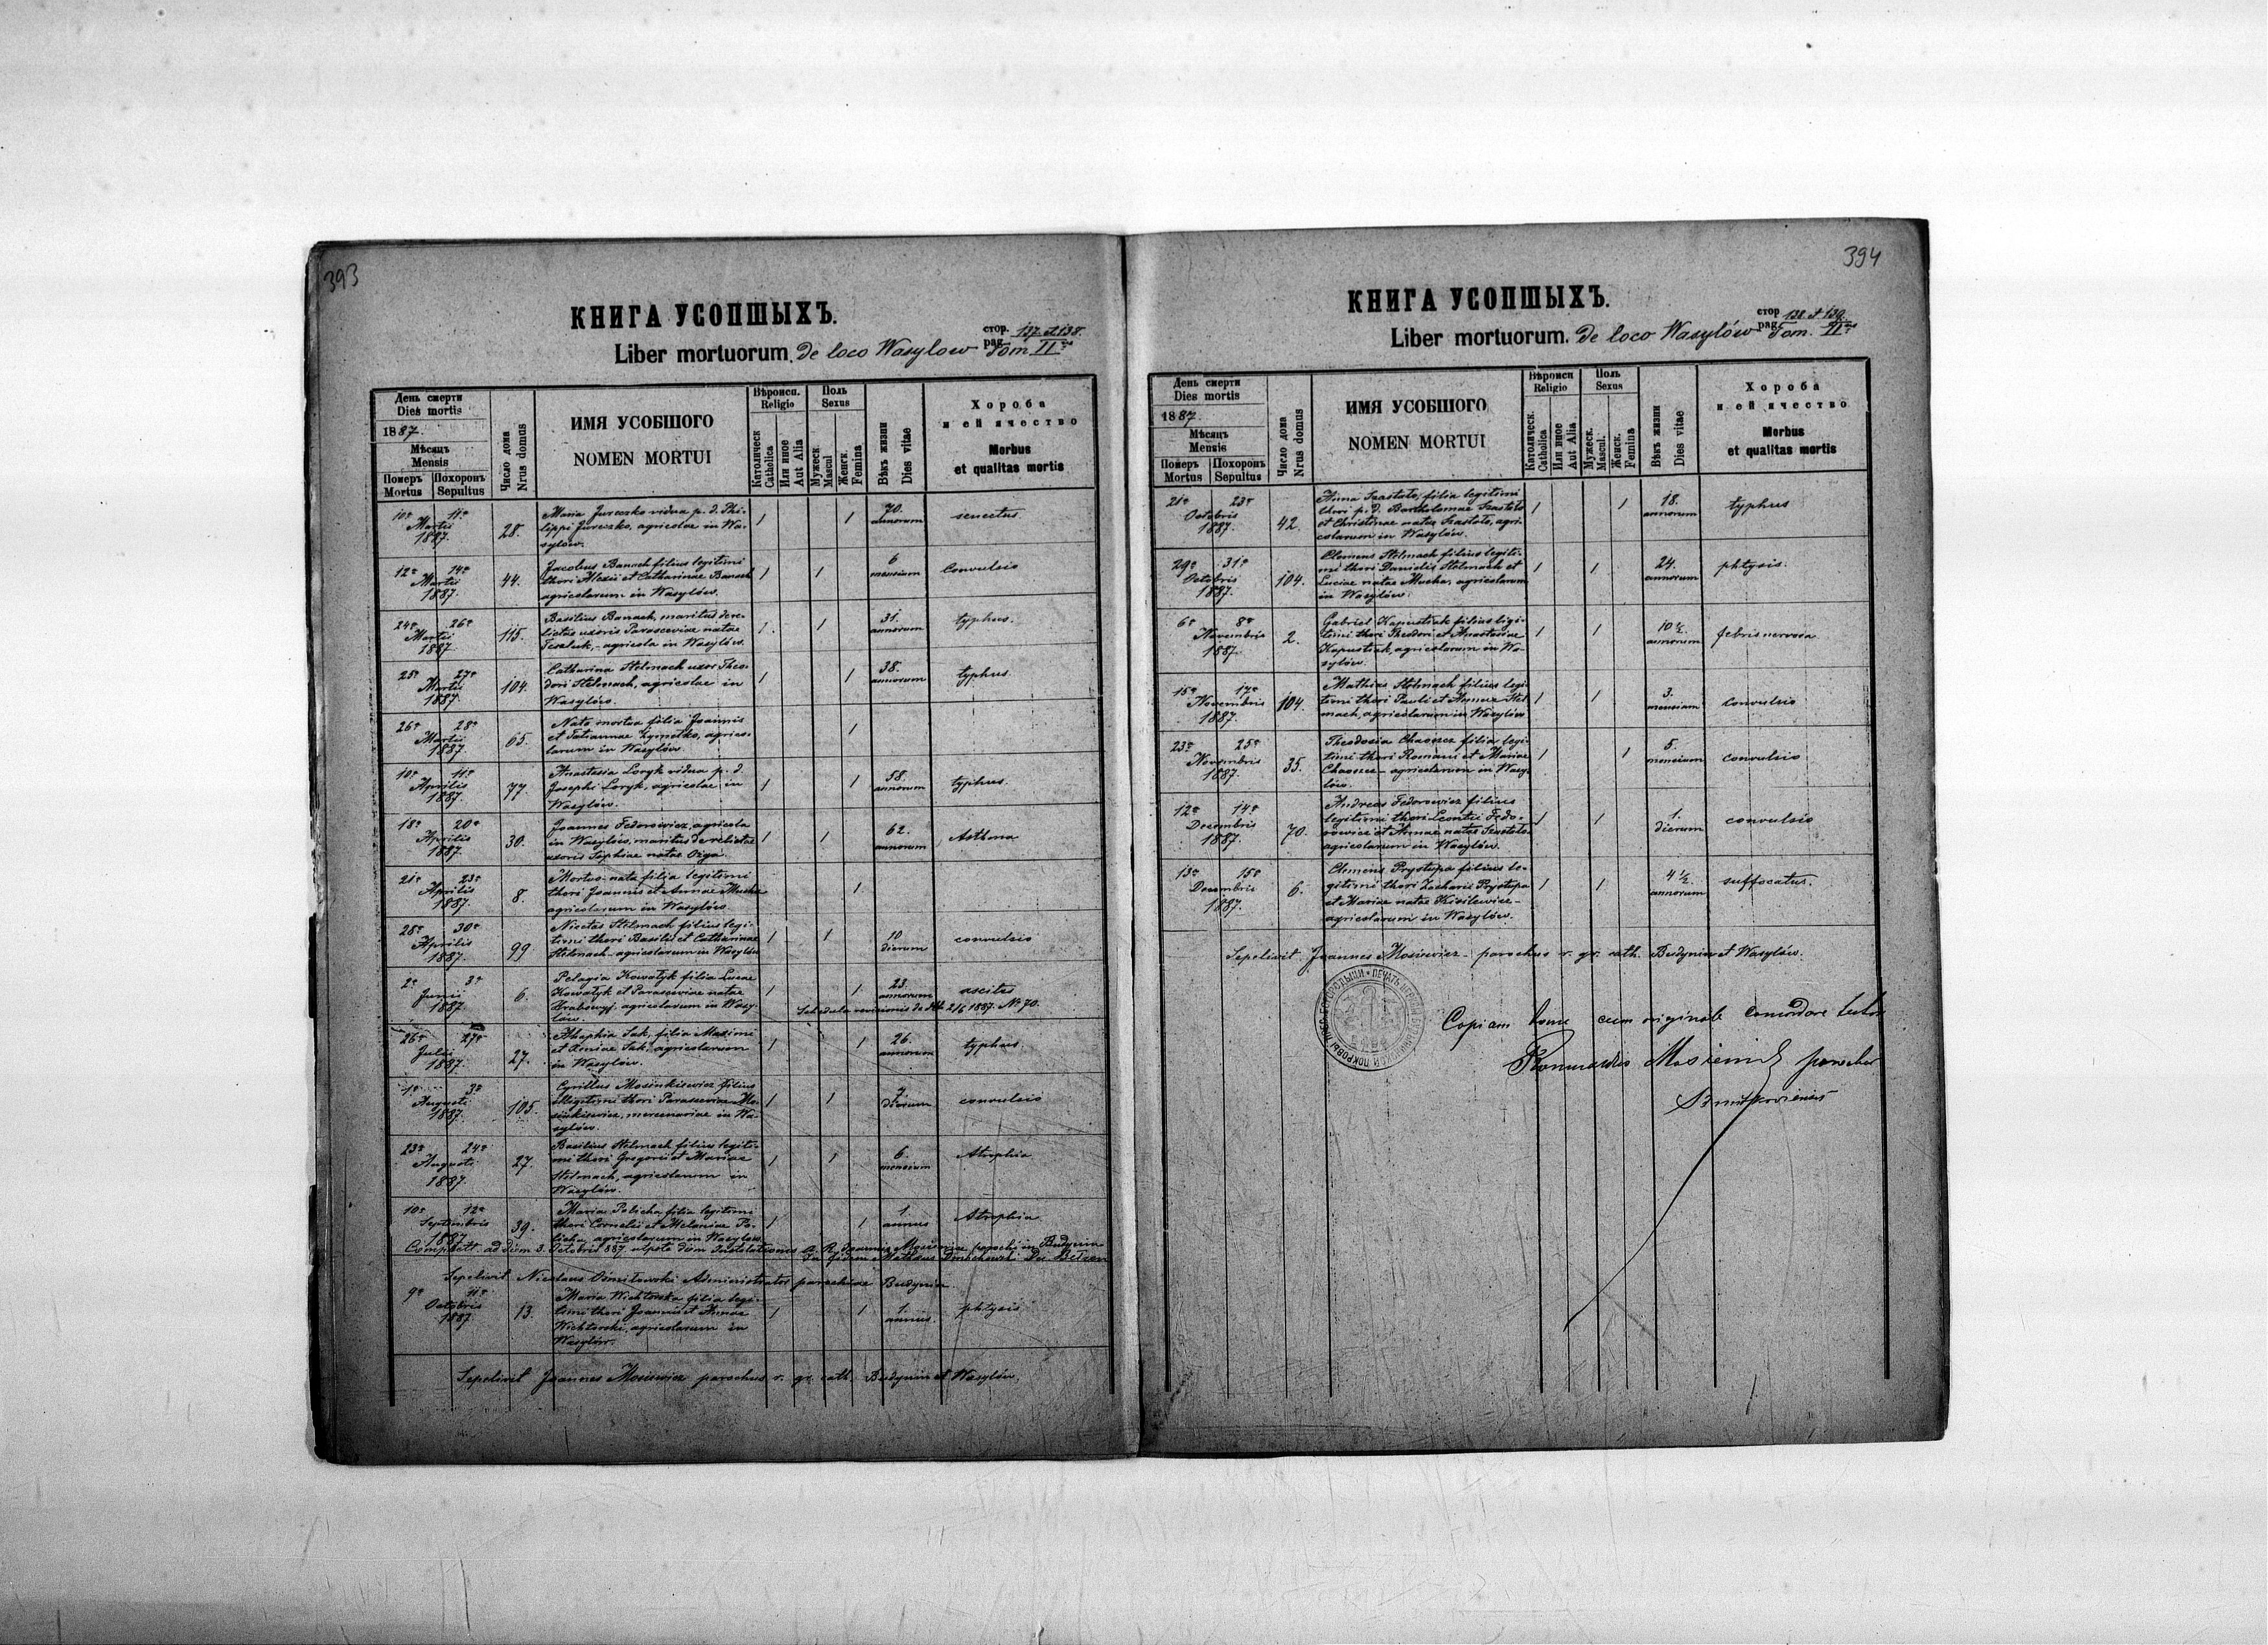 393
КНИГА УСОПШЫХЪ.
стор. 137. et 138.
pag.
Liber mortuorum. De loco Wasylow Tom II
День смерти
Dies mortis
1887.
Мѣсяць
Mensis
Померъ Похоронъ
Mortus Sepultus
Число дома
Nrus domus
ИМЯ УСОБШОГО
NOMEN MORTUI
Вѣроисп.
Religio
Католическ
Catholica
Или иное
Aut Alia
Поль
Sexus
Мужеск
Mascul
Женск.
Femina
Вѣкъ жизни
Dies vitae
Хороба
и ей ячество
Morbus
et qualitas mortis
10a 11a
Martii
1887.
28.
Maria Jureczko vidua p. d. Phi-
lippi Jureczko, agricolae in Wa-
sylów.
1 1
70.
annorum
senectus
12a 14a
Martii
1887.
44.
Jacobus Banach filius legitimi
thori Alexii et Catharinae Banach
agricolarum in Wasylów.
1 1
6
mensium
Convulsio
24a 26a
Martii
1887
115.
Basilius Banach, maritus dere-
lictus uxoris Parasceviae natae
Teszluk, agricola in Wasylów.
1. 1
31.
annorum
typhus.
25a 27a
Martii
1887.
104.
Catharina Stelmach uxor Theo-
dori Stelmach, agricolae in
Wasylów.
1 1
38.
annorum
typhus.
26a 28a
Martii
1887.
65.
Nato mortua filia Joannis
et Tatiannae agrico-
larum in Wasylów.
1
10a 11a
Aprilis
1887.
77.
Anastasia Loryk vidua p. d.
Josephi Loryk, agricolae in
Wasylów.
1 1
58.
annorum
typhus.
18a 20a
Aprilis
1887.
30.
Joannes Fedorowicz, agricola
in Wasylów, maritus derelictae
uxoris Sophiae natae
1 1
62.
annorum
Asthma
21a 23a
Aprilis
1887.
8.
Mortuo-nata filia legitimi
thori Joannis et Annae Mucha
agricolarum in Wasylów.
1
28a 30a
Aprilis
1887.
99
Nicetas Stelmach filius legi-
timi thori Basilii et Catharinae
Stelmach agricolarum in Wasylów
1 1
10
dierum
convulsio
2a 3a
Junii
1887.
6.
Pelagia Kowalyk filia Lucae
Kowalyk et Parasceviae natae
agricolarum in Wasy-
lów.
1 1
23.
annorum
ascites
Schedula revisionis de dto 2/6 1887. No 70.
26a 27a
Julii
1887.
27.
Sak, filia Maximi
et Sak, agricolarum
in Wasylów.
1 1
26.
annorum
typhus.
1a 3a
Augusti
1887.
105.
Cyrillus Mosinkiewicz filius
illegitimi thori Parasceviae Mo-
sinkiewicz, mercenariae in Wa-
sylów.
1 1
7.
dierum
convulsio
23a 24a
Augusti
1887
27.
Basilius Stelmach filius legiti-
mi thori Gregorii et Mariae
Stelmach, agricolarum in
Wasylów.
1 1
6.
mensium
Atrophia
10a 12a
Septembris
1887
39.
Maria Policha, filia legitimi
thori Cornelii et Melaniae Po-
licha, agricolarum in Wasylów.
1 1
1.
annus
Atrophia
ad diem 3. Octobris 887. Joannis parochi in Budynin
Sepelivit Nicolaus Administrator parochiae Budynin.
9a 11a
Octobris
1887.
13.
Maria Wichtorska filia legi-
timi thori Joannis et Annae
Wichtorski, agricolarum in
Wasylów.
1 1
1.
annus.
phtysis
Sepelivit Joannes Mosiewicz parochus r. gr. cath. Budynin et Wasylów.
394
КНИГА УСОПШЫХЪ.
стор 138 et 139.
pag.
Liber mortuorum. De loco Wasylów Tom. II
День смерти
Dies mortis
1887.
Мѣсяцъ
Mensis
Померъ Похоронъ
Mortus Sepultus
Число дома
Nrus domus
ИМЯ УСОБШОГО
NOMEN MORTUI
Вѣроисп
Religio
Католическ.
Catholica
Или иное
Aut Alia
Поль
Sexus
Мужеск.
Mascul.
Женск.
Femina
Вѣкъ жизни
Dies vitae
Хороба
и ей ячество
Morbus
et qualitas mortis
21a 23a
Octobris
1887.
42.
Anna Szostoło, filia legitimi
thori p. d. Bartholomae Szostoło
et Christinae natae Szostoło, agri-
colarum in Wasylów.
1 1
18.
annorum
typhus
29a 31a
Octobris
1887.
104.
Clemens Stelmach filius legiti-
mi thori Danielis Stelmach et
Luciae natae Mucha, agricolarum
in Wasylów.
1 1
24.
annorum
phtysis.
6a 8a
Novembris
1887.
2.
Gabriel Kapustiak filius ligi-
timi thori Theodori et Anastasiae
Kapustiak, agricolarum in Wa-
sylów.
1 1
10 1/2.
annorum
febris nervosa
15a 17a
Novembris
1887.
104.
Mathias Stelmach filius legi-
timi thori Pauli et Annae Stel-
mach, agricolarum in Wasylów
1 1
3.
mensium
Convulsio
23a 25a
Novembris
1887.
35.
Theodosia filia legi-
timi thori Romani et Mariae
agricolarum in Wasy-
lów.
1 1
5.
mensium
convulsio
12a 14a
Decembris
1887.
70.
Andreas Fedorowicz filius
legitimi thori Leontii Fedo-
rowicz et Annae natae Szostoło
agricolarum in Wasylów.
1 1
1.
dierum
convulsio
13a 15a
Decembris
1887.
6.
Clemens Prystupa filius le-
gitimi thori Zacharii Prystupa
et Mariae natae Kisilewicz
agricolarum in Wasylów.
1 1
4 1/2.
annorum
suffocatus.
Sepelivit Joannes Mosiewicz parochus r. gr. cath. Budynin et Wasylów.
Copiam hanc cum originale concordare testor
parochus